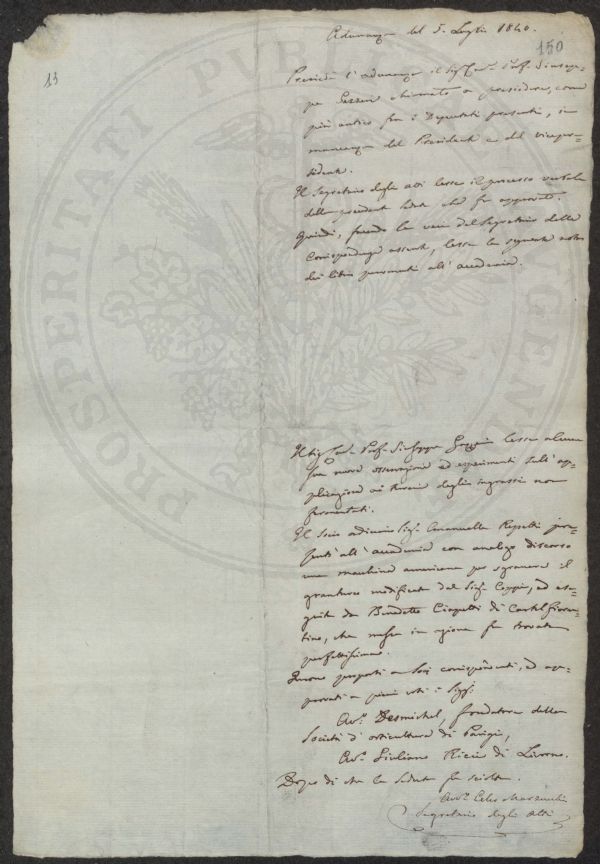 Adunanza del 5. Luglio 1840.
150
13
Presiede l'adunanza il Sig. Cav. Prof. Giusep-
pe Gazzeri chiamato a presiedere, come
più antico fra i Deputati presenti, in
mancanza del Presidente e del vicepre-
sidente.
Il Segretario degli atti lesse il processo verbale
della precedente seduta che fu approvato.
Quindi, facendo le veci del Segretario delle
Corrispondenze assente, lesse la seguente nota
dei libri pervenuti all'accademia.
Il Sig. Cav. Prof. Giuseppe Gazzeri lesse alcune
sue nuove osservazioni ed esperimenti sull'ap-
plicazione ai terreni degli ingrassi non
fermentati.
Il Socio ordinario Sig. Emanuelle Repetti pre-
sentò all'accademia con analogo discorso
una macchina americana per sgranare il
granturco modificata dal Sig. Coppi, ed ese-
guita da Benedetto Ciapetti di Castelfioren-
tino, che messa in azione fu trovata
perfettissima.
Furono proposti a Soci corrispondenti, ed ap-
provati a pieni voti i Sigg.
Desmichel, fondatore della
Società d'orticultura di Parigi,
Avv. Giuliano Ricci di Livorno.
Dopo di che la Seduta fu sciolta.
Avv. Celso Marzucchi
Segretario degli Atti
PROSPERITATI PUBLICAE AUGENDAE